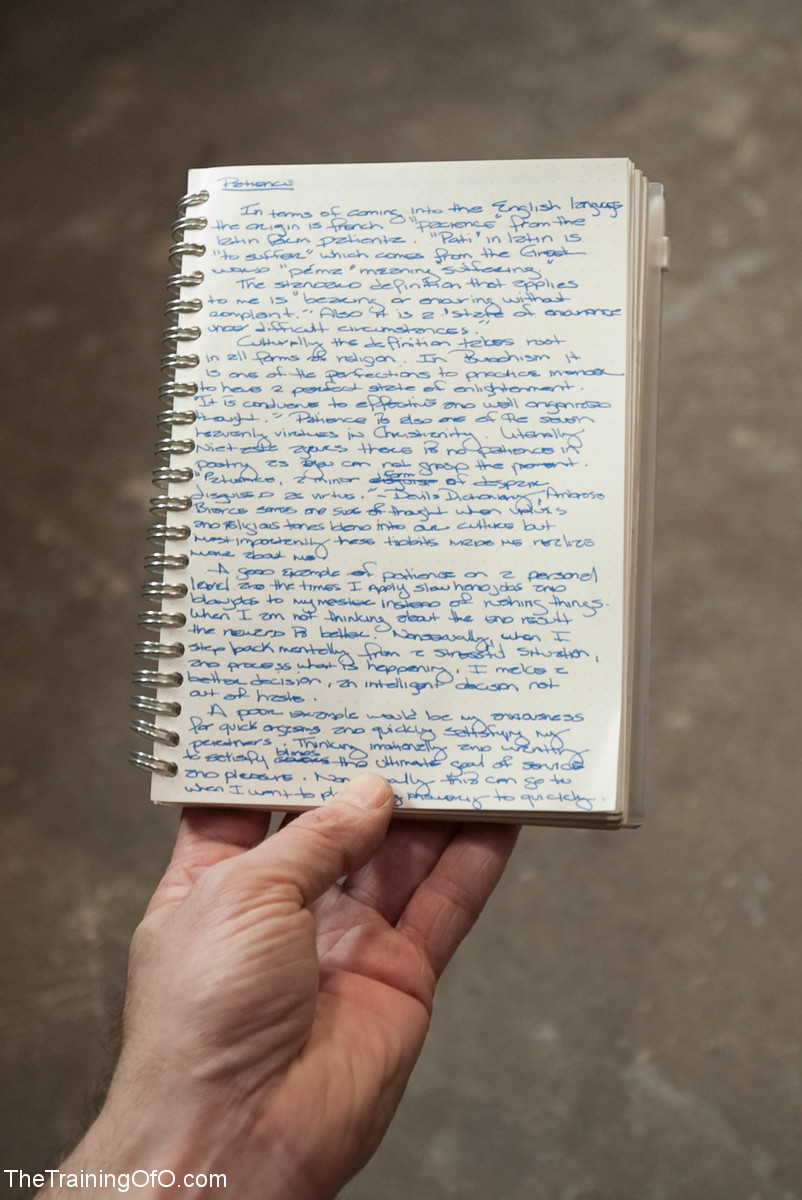 Patience
In terms of coming into the English language
the origin is french "patience" from the
latin form patientz. "Pati" in latin is
"to suffer" which comes from the Greek
word "pémz" meaning suffering"
The standard definition that applies
to me is "bearing or enduring without
complaint." Also it is a "state of endurance
under difficult circumstances."
Culturally the definition takes root
in all forms of religion. In Buddhism it
is one of the perfections to practice in order
to have a perfect state of enlightenment.
"It is conducive to effective and well organized
thought." Patience is also one of the seven
heavenly virtues in Christianity. Literally
agrees there is no patience in
poetry as you can not grasp the moment.
"Patience, a minor form of despair
disguised as virtue." - Devils Dictionary, Ambrose
Bierce some side of thought when
and religious tones blend into our culture but
most importantly these tidbits made me realize
more about me.
A good example of patience on a personal
level are the times I apply slow handjobs and
blowjobs to my master instead of rushing things.
When I am not thinking about the end result
the reward is better. Nonsexually, when I
step back mentally from a stressful situation,
and process what is happening, I make a
better decision, an intelligent decision not
out of haste.
A poor example would be my anxiousness
for quick orgasms and quickly satisfying my
partners. Thinking irrationally and wanting
to satisfy blinds the ultimate goal of service
and pleasure. this can go to
when I want to to quickly.
TheTrainingOfO.com